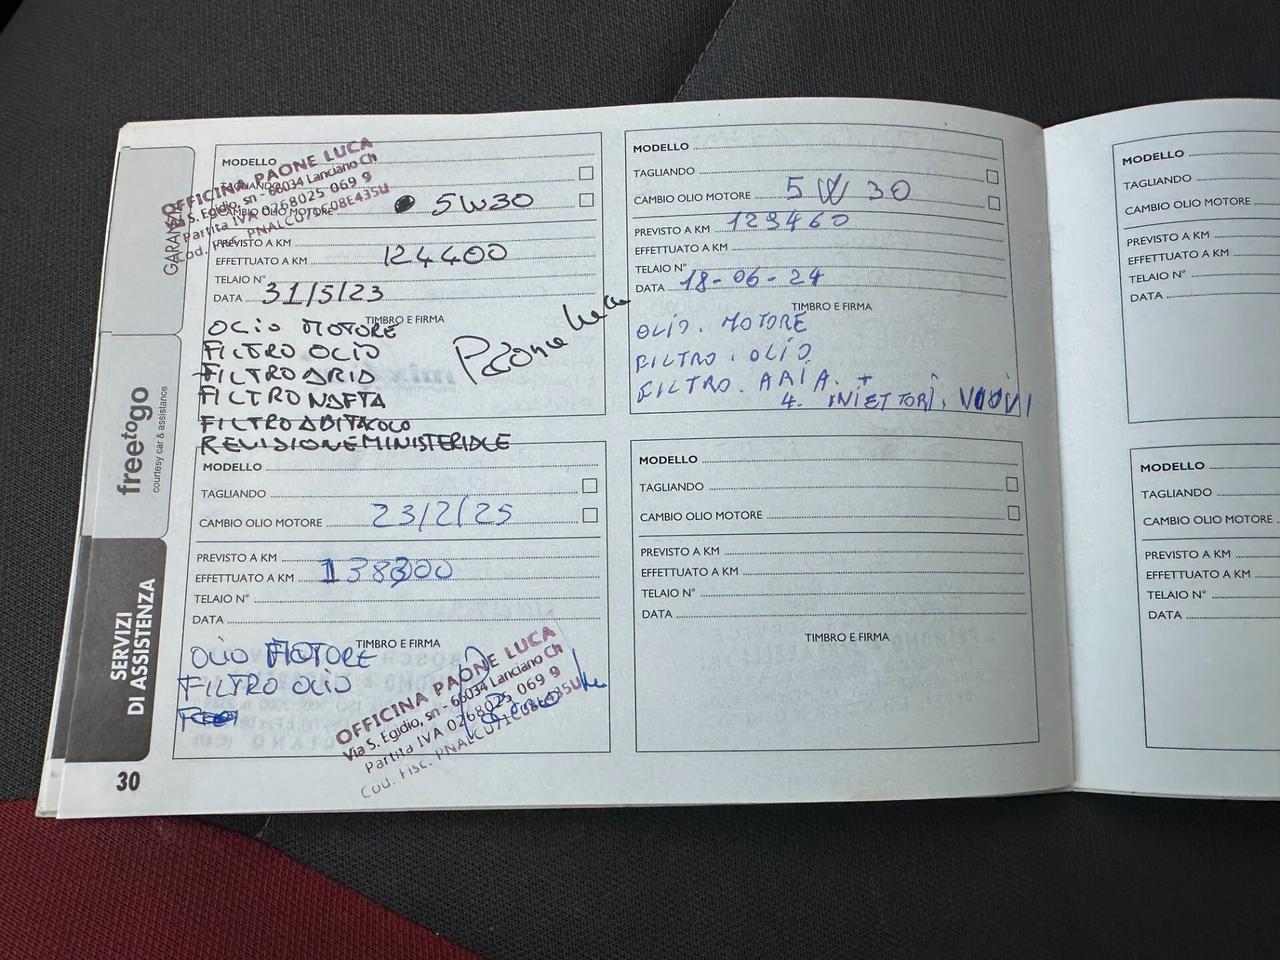 GARANZIA
freetogo
courtesy car & assistance
SERVIZI
DI ASSISTENZA
30
OFFICINA PAONE LUCA
Via S. Egidio, sn - 66034 Lanciano Ch
Partita IVA 0268025 069 9
Cod. Fisc. PNALCU71C08E435U
MODELLO
TAGLIANDO
CAMBIO OLIO MOTORE 5W30
PREVISTO A KM
EFFETTUATO A KM 124400
TELAIO N°
DATA 31/5/23
TIMBRO E FIRMA
OLIO MOTORE
FILTRO OLIO
FILTRO ARIA
FILTRO NAFTA
FILTRO ABITACOLO
REVISIONE MINISTERIALE
Paone Luca
MODELLO
TAGLIANDO
CAMBIO OLIO MOTORE 5W30
PREVISTO A KM 129460
EFFETTUATO A KM
TELAIO N°
DATA 18-06-24
TIMBRO E FIRMA
OLIO. MOTORE
FILTRO. OLIO
FILTRO. ARIA. +
4. INIETTORI, NUOVI
MODELLO
TAGLIANDO
CAMBIO OLIO MOTORE 23/2/25
PREVISTO A KM
EFFETTUATO A KM 138300
TELAIO N°
DATA
TIMBRO E FIRMA
OLIO MOTORE
FILTRO OLIO
OFFICINA PAONE LUCA
Via S. Egidio, sn - 66034 Lanciano Ch
Partita IVA 0268025 069 9
Cod. Fisc. PNALCU71C08E435U
MODELLO
TAGLIANDO
CAMBIO OLIO MOTORE
PREVISTO A KM
EFFETTUATO A KM
TELAIO N°
DATA
TIMBRO E FIRMA
MODELLO
TAGLIANDO
CAMBIO OLIO MOTORE
PREVISTO A KM
EFFETTUATO A KM
TELAIO N°
DATA
MODELLO
TAGLIANDO
CAMBIO OLIO MOTORE
PREVISTO A KM
EFFETTUATO A KM
TELAIO N°
DATA